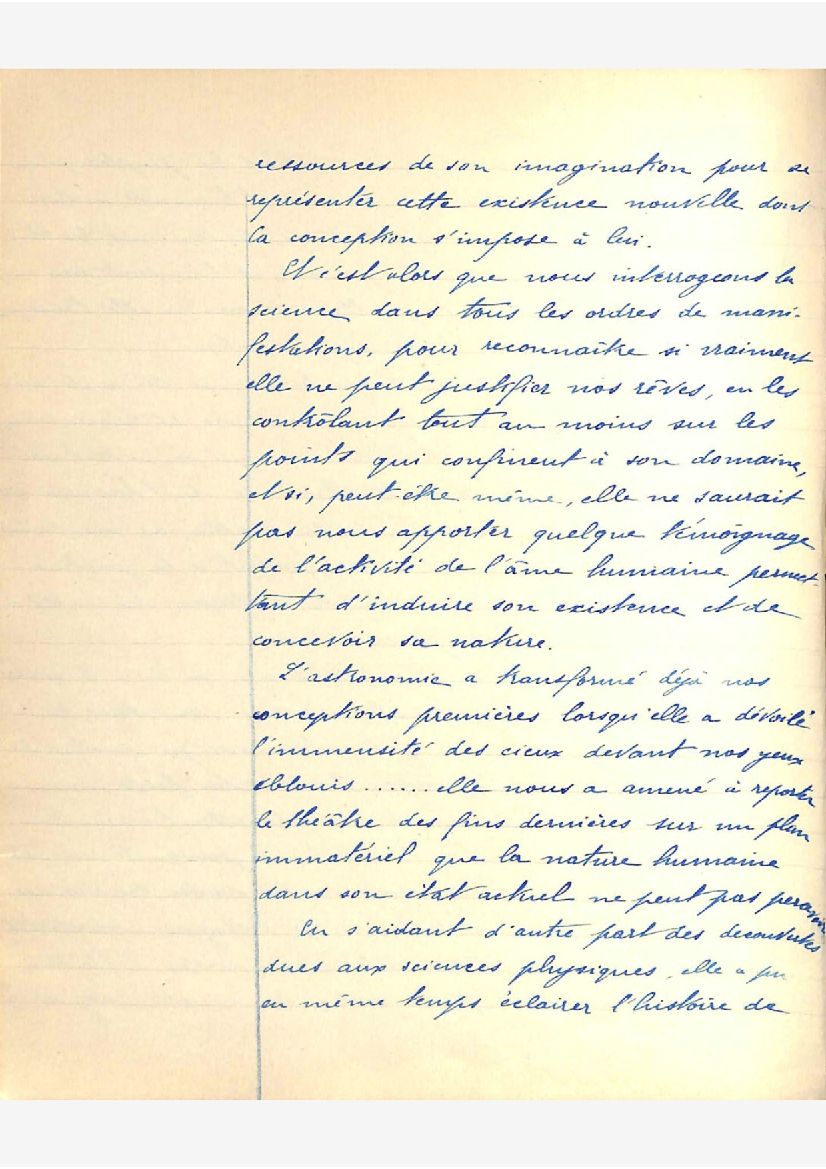 ressources de son imagination pour se
représenter cette existence nouvelle dont
la conception s'impose à lui.
Et c'est alors que nous interrogeons la
science dans tous les ordres de mani-
festations, pour reconnaître si vraiment
elle ne peut justifier nos rêves, en les
contrôlant tout au moins sur les
points qui confinent à son domaine,
et si, peut-être même, elle ne saurait
pas nous apporter quelque témoignage
de l'activité de l'âme humaine permet-
tant d'induire son existence et de
concevoir sa nature.
L'astronomie a transformé déjà nos
conceptions premières lorsqu'elle a dévoilé
l'immensité des cieux devant nos yeux
éblouis ...... elle nous a amené à reporter
le théâtre des fins dernières sur un plan
immatériel que la nature humaine
dans son état actuel ne peut pas percevoir
En s'aidant d'autre part des decouvertes
dues aux sciences physiques, elle a pu
en même temps éclairer l'histoire de